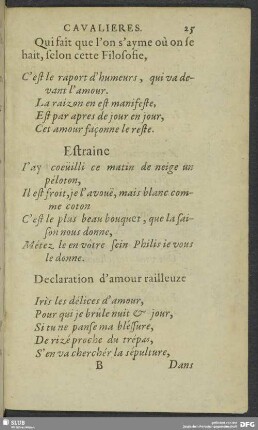 CAVALIERES. 25
Qui fait que l'on s'ayme où on se
hait, selon cette Filosofie,
C'eſt le raport d'humeurs, qui va de-
vant l'amour.
La raizon en est manifeſte,
Eſt par apres de jour en jour,
Cet amour façonne le reſte.
Eſtraine
I'ay coeüilli ce matin de neige un
peloton,
Il eſt froit, je l'avouë, mais blanc com-
me coton
C'eſt le plus beau bouquet, que la ſai-
ſon nous donne,
Métez le en vôtre ſein Philis ie vous
le donne.
Declaration d'amour railleuze
Iris les délices d'amour,
Pour qui je brûle nuit & jour,
Si tu ne panſe ma bléſſure,
De rizé proche du trépas,
S'en va cherchér la sépulture,
B Dans
SLUB
DFG